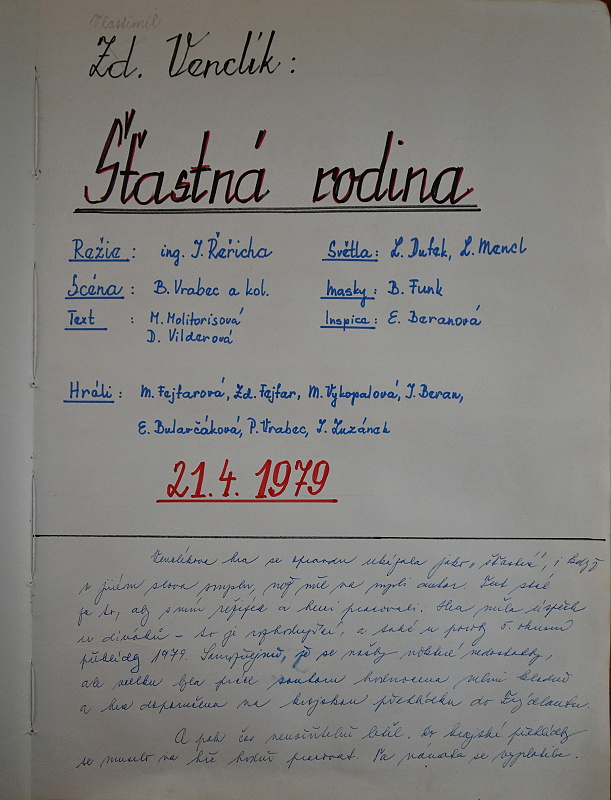 Vlastimil
Zd. Venclík:
Šťastná rodina
Režie: ing. J. Řeřicha
Světla: L. Dufek, L. Mencl
Scéna: B. Vrabec a kol.
Masky: B. Funk
Text : M. Molitorisová
D. Vilderová
Inspice: E. Beranová
Hráli: M. Fejfarová, Zd. Fejfar, M. Vykopalová, J. Beran,
E. Bularčáková, P. Vrabec, J. Luzánek
21. 4. 1979
Venclíkova hra se opravdu ukázala jako „šťastná", i když
v jiném slova smyslu, než měl na mysli autor. Text stál
za to, aby s ním režisér a herci pracovali. Hra měla úspěch
u diváků - to je rozhodující, a také u poroty 5. okresní
přehlídky 1979. Samozřejmě, že se našly některé nedostatky,
ale celkem byla práce souboru hodnocena velmi kladně
a hra doporučena na krajskou přehlídku do
A pak čas neuvěřitelně letěl. Do krajské přehlídky
se muselo na hře hodně pracovat. Ta námaha se vyplatila.